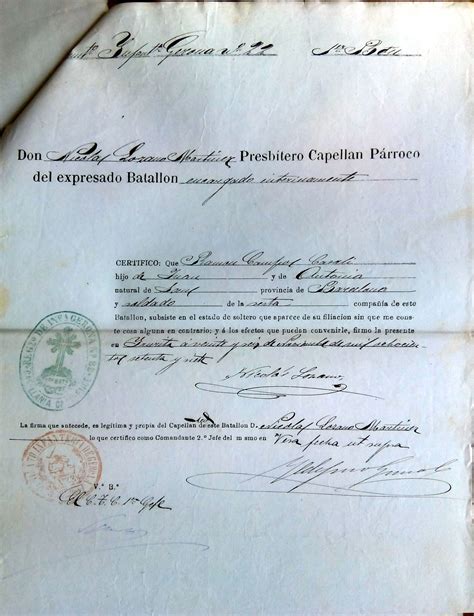 Infant.ª Gerona nº 22 1er Bon
Don Nicolas Lozano Martinez Presbítero Capellan Párroco
del expresado Batallon encargado interinamente
CERTIFICO: Que Ramon Campos
hijo de Juan y de Antonia
natural de provincia de Barcelona
y soldado de la sesta compañia de este
Batallon, subsiste en el estado de soltero que aparece de su filiacion sin que me
conste cosa alguna en contrario; y á los efectos que puedan convenirle, firmo la presente
en á veinte y seis de de mil ochocien
tos setenta y siete
Nicolás Lozano
La firma que antecede, es legítima y propia del Capellan de este Batallon D. Nicolas Lozano Martinez
lo que certifico como Comandante 2.º Jefe del mismo en Vera fecha ut supra
V.º B.º
El C. T. C. 1er Gefe